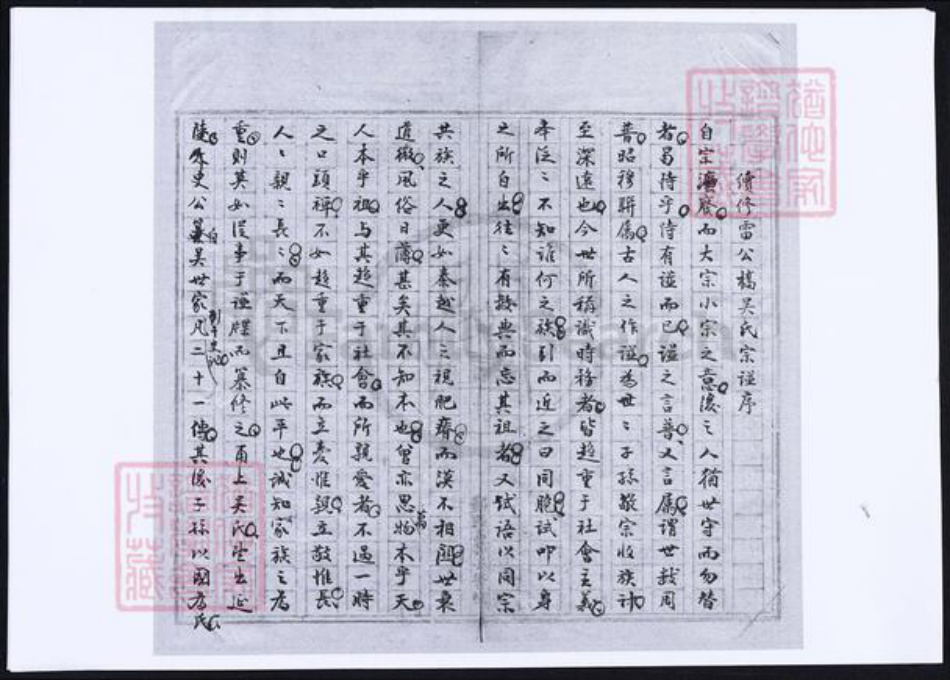 續修雷公橋吳氏宗譜序
自宗灋廢而大宗小宗之意後之人猶世守而勿替
者曷恃乎恃有譜而已譜之言普又言屬謂世數周
普昭穆聯屬古人之作譜為世之子孫敬宗收族計
至深遠也今世所稱識時務者皆趨重于社會主義
本泛泛不知誰何之族引而近之曰同胞試叩以身
之所自出往往有數典而忘其祖者又試語以同宗
共族之人更如秦越人之視肥瘠而漠不相關世衰
道微風俗日薄甚矣其不知本也曾亦思萬物本乎天
人本乎祖與其趨重于社會而所親愛者不過一時
之口頭禪不如趨重于家族而立愛惟親立敬惟長
人人親親長長而天下且自此平也誠知家族之為
重則其如從事于譜牒而纂修之甬上吳氏望出延
陵太史公 自 吳世家 列于史記 凡二十一傳其後子孫以國為氏
猶他家譜學會收藏